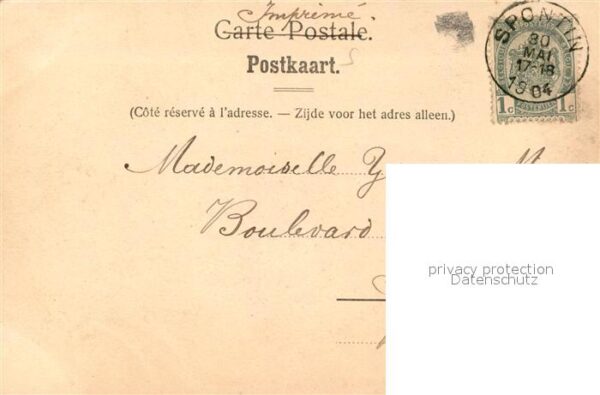 Imprimé.
Carte Postale.
Postkaart.
(Côté réservé à l'adresse. — Zijde voor het adres alleen.)
SPONTIN
30
MAI
17-18
1904
1c 1c
Mademoiselle Y
Boulevard
privacy protection
Datenschutz